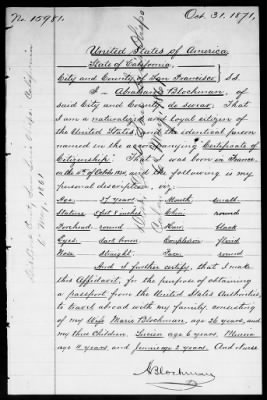 No. 15981.
Oct. 31. 1871,
United States of America,
State of California.
City and County of San Francisco SS.
I - Abraham Blochman, of
said City and County, do swear: That
I am a naturalized and loyal citizen of
the United States, and the identical person
named in the accompanying "Certificate of
Citizenship." That I was born in France,
on the of and the following is my
personal description, viz:
Age: 37 years. Mouth: small
Stature 5 feet inches Chin: round
Forehead round Hair: black
Eyes: dark brown Complexion florid
Nose straight. Face: round
And I further certify, that I make
this Affidavit, for the purpose of obtaining
a passport from the United States Authorities,
to travel abroad with my family, consisting
of my Wife Marie Blochman, age 26 years, and
my three Children, Lucien age 6 years, Mirena
age 4 years, and Jennie age 2 years. And Nurse
A Blochman